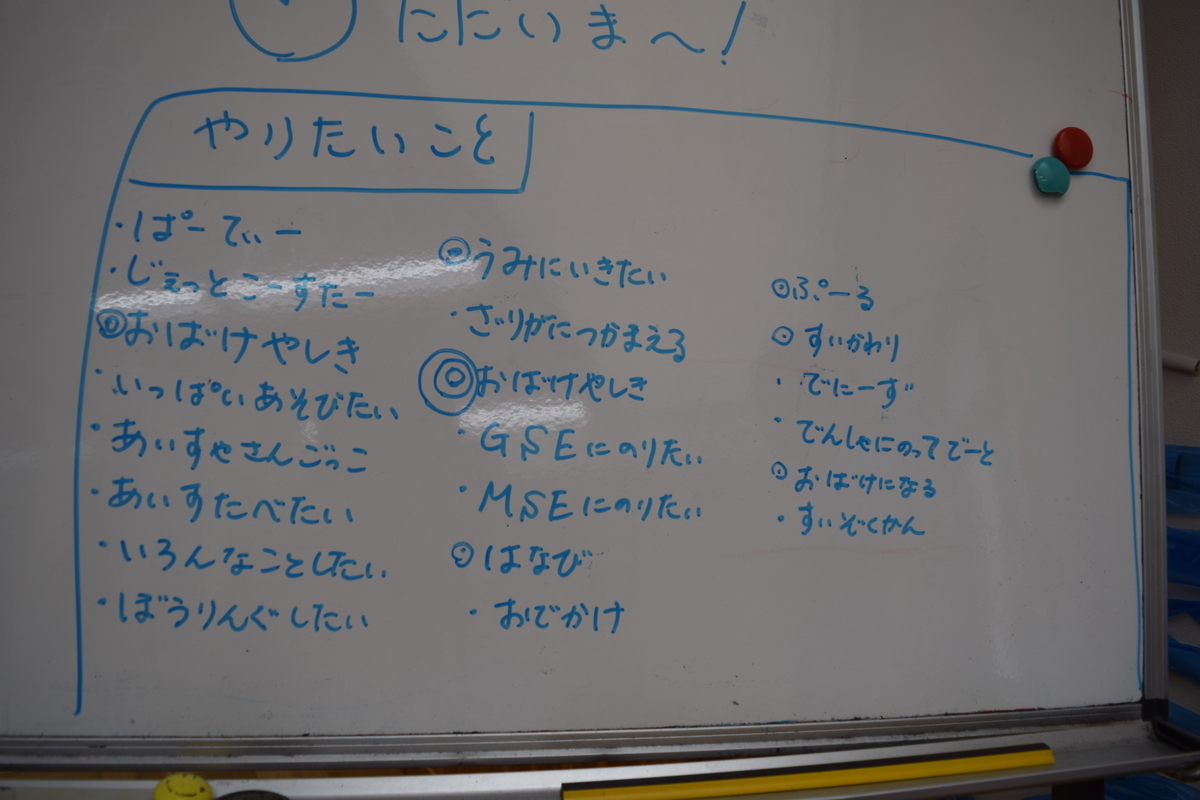 ににいま〜!
やりたいこと
・ぱーてぃー
・じぇっとこーすたー
◎おばけやしき
・いっぱいあそびたい
・あいすやさんごっこ
・あいすたべたい
・いろんなことしたい
・ぼうりんぐしたい
◎うみにいきたい
・ざりがにつかまえる
◎おばけやしき
・GSEにのりたい
・MSEにのりたい
◎はなび
・おでかけ
◎ぷーる
◎すいかわり
・でにーず
・でんしゃにのってでーと
◎おばけになる
・すいぞくかん